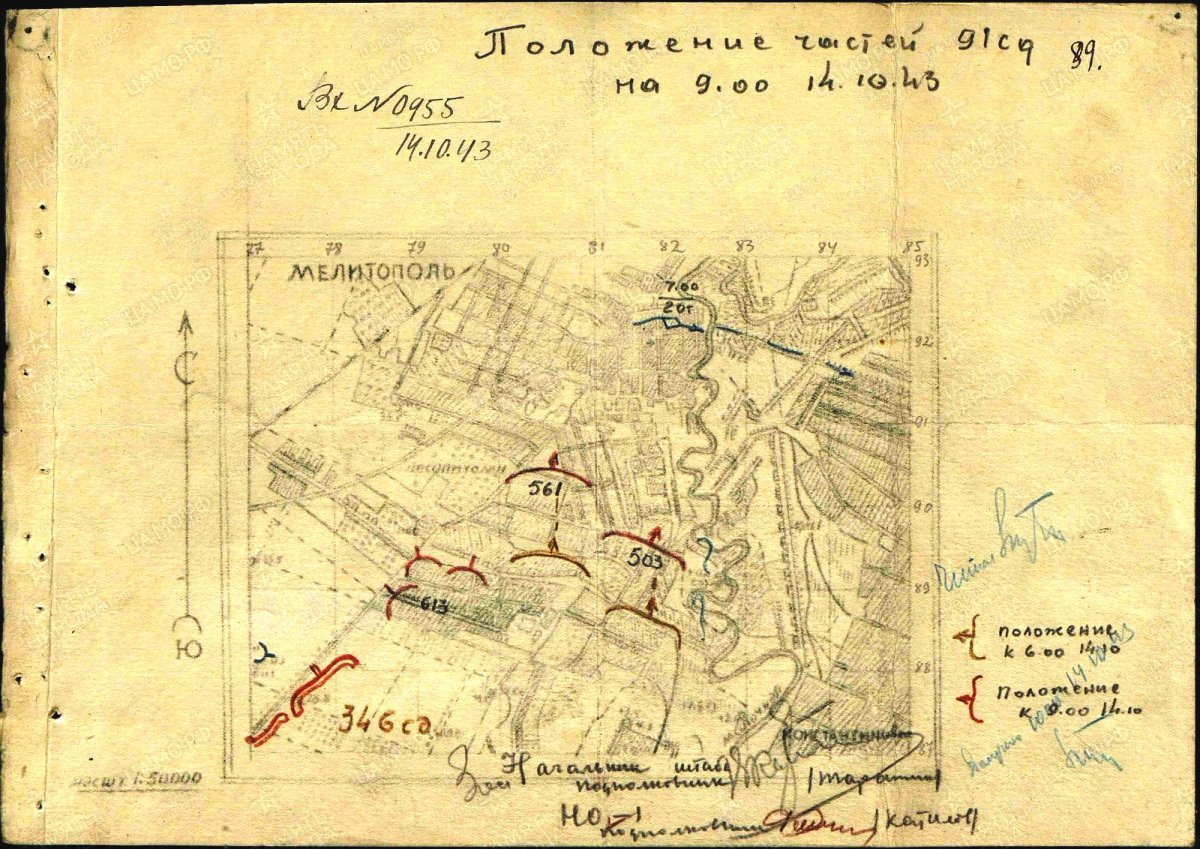 Положение частей 91сд
на 9.00 14.10.43
89.
Вх N0955
14.10.43
77 78 79 80 81 82 83 84 85
93
МЕЛИТОПОЛЬ
7.00
20т
92
С
91
561
90
503
89
613
Ю
положение
к 6.00 14.10
88
Положение
к 9.00 14.10
346сд
КОНСТАНТИНОВКА
87
масшт 1:50000
Зам Начальник штаба
подполковник
НО-1
подполковник